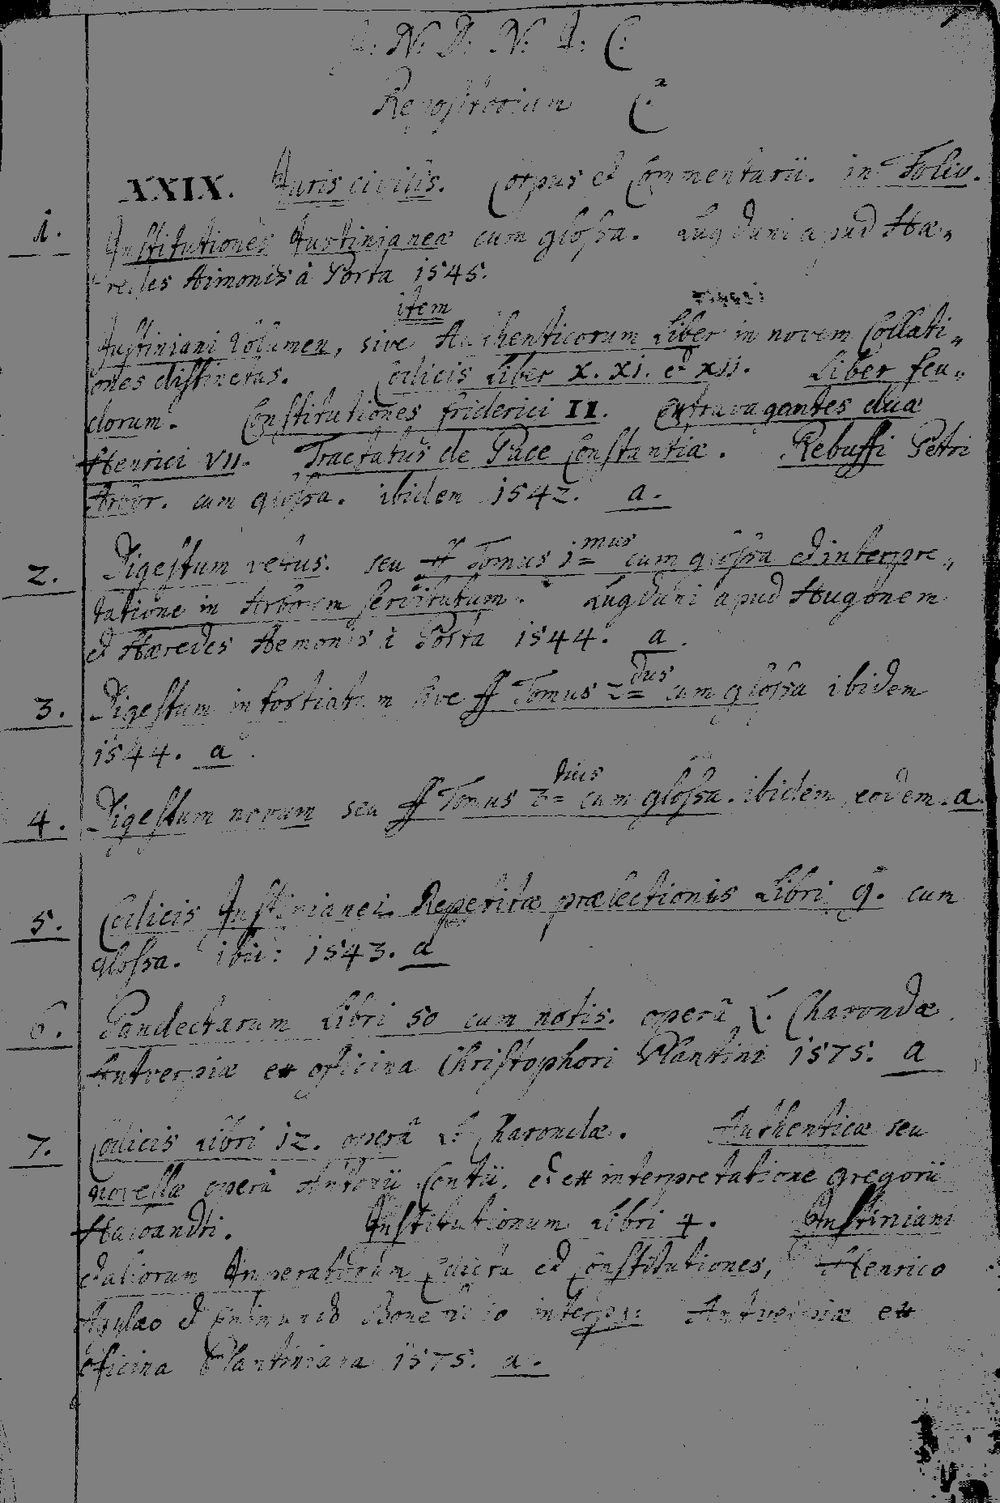 I. N. D. N. I. C.
Repositorium C.a
XXIX. Juris civilis. Corpus et Commentarii. in Folio.
1. Institutiones Justinianeæ cum glossa. Lugduni apud Hæ-
redes Aimonis à Porta 1545.
item
Justiniani Volumen, sive Authenticorum Liber in novem Collati-
ones distinctus. Codicis Liber X. XI. et XII. Liber feu-
dorum. Constitutiones friderici II. Extravagantes duæ
Henrici VII. Tractatus de Pace Constantiæ. Rebuffi Petri
Arbor. cum glossa. ibidem 1542. a.
2. Digestum vetus. seu ff Tomus 1mus cum glossa et interpre-
tatione in Arborem servitutum. Lugduni apud Hugonem
et Hæredes Aemonis à Porta 1544. a.
3. Digestum infortiatum sive ff Tomus 2dus cum glossa ibidem
1544. a.
4. Digestum novum seu ff Tomus 3tius cum glossa. ibidem eodem. a
5. Codicis Justinianei Repetitæ prælectionis Libri 9. cum
glossa. ibid: 1543. a
6. Pandectarum Libri 50 cum notis. operâ L. Charondæ.
Antverpiæ ex officina Christophori Plantini 1575. a
7. Codicis Libri 12. operâ L. Charondæ. Authenticæ seu
novellæ operâ Antonii Contii. et ex interpretatione gregorii
Haloandri. Institutionum Libri 4. Justiniani
et aliorum Imperatorum Edicta et Constitutiones, Henrico
Agylæo et Enimundo Bonefidio interpr: Antverpiæ ex
officina Plantiniana 1575. a.